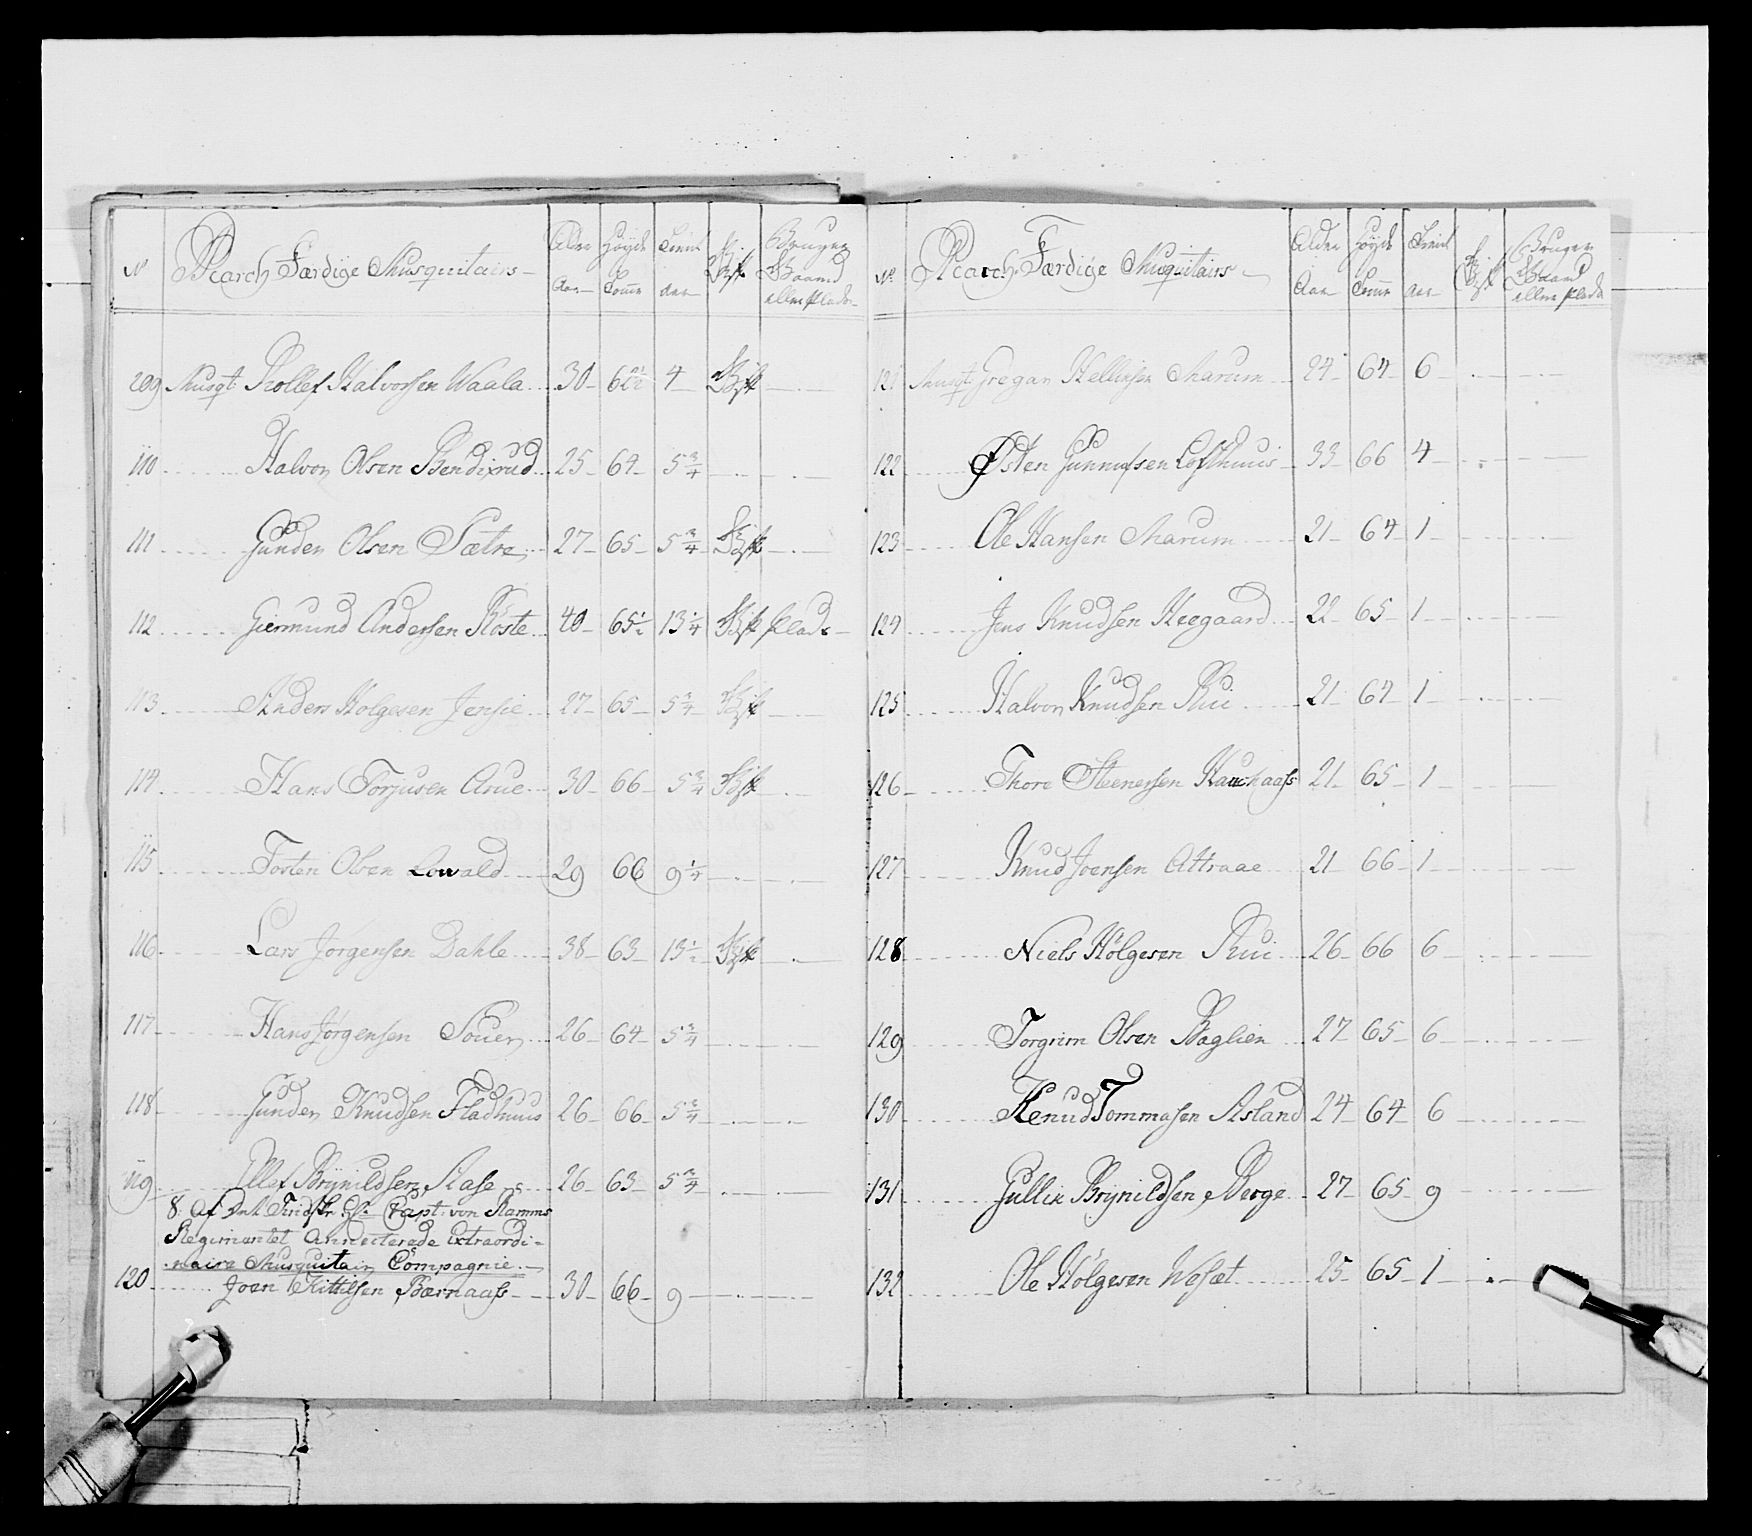 No March Færdige Musquitairs Alder Aar Høyde Tomm Tient aar Gift Bruger Gaard eller Plads
109 Musqt: Rollef Halvorsen Waala 30 62½ 4 Gift
110 Halvor Olsen Bendixrud 25 64 5¾
111 Gunder Olsen Sætre 27 65 5¾ Gift
112 Giermund Andersen Röste 40 65½ 13¼ Gift Plads
113 Anders Holgesen Jensie 27 65 5¾ Gift
114 Hans Torjusen Arue 30 66 5¾ Gift
115 Tosten Olsen Lowald 29 66 9¼
116 Lars Jørgensen Dahle 38 63 13½ Gift
117 Hans Jørgensen Souer 26 64 5¾
118 Gunder Knudsen Fladhuus 26 66 5¾
119 Ellef Brÿnildsen Aase 26 63 5¾
8. Af Capt: von Ramms
Regimentet Annecterede Extraordi-
naire Musquitair Compagnie
120 Joen Kittilsen Bærnaass 30 66 9
No March Færdige Musquitairs Alder Aar Høyde Tomm Tient aar Gift Bruger Gaard eller Plads
121 Musqt Gregar Hellissen Marum 24 64 6
122 Østen Gunnufsen Lofthuus 33 66 4
123 Ole Hansen Marum 21 64 1
124 Jens Knudsen Heegaard 22 65 1
125 Halvor Knudsen Rui 21 64 1
126 Thore Steenersen Haukaass 21 65 1
127 Knud Joensen Attraae 21 66 1
128 Niels Hölgesen Rui 26 66 6
129 Torgrim Olsen Baglien 27 65 6
130 Knud Tommasen Asland 24 64 6
131 Gullik Brÿnildsen Berge 27 65 9
132 Ole Hölgesen Wesæt 25 65 1